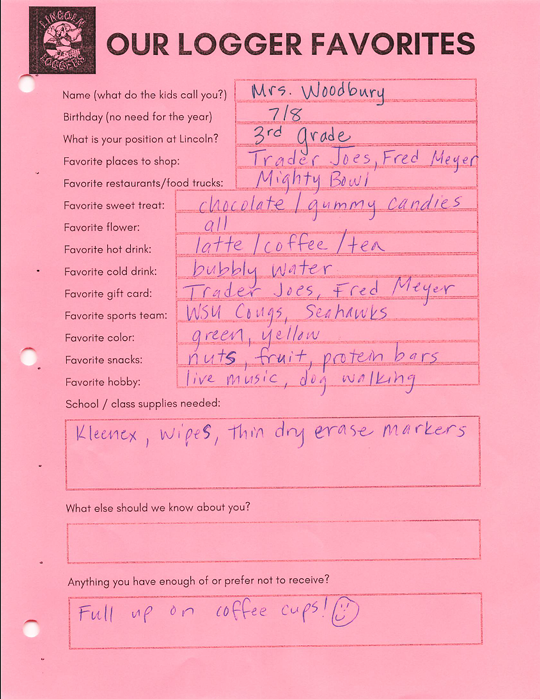 LINCOLN
LOGGERS
OUR LOGGER FAVORITES
Name (what do the kids call you?) Mrs. Woodbury
Birthday (no need for the year) 7/8
What is your position at Lincoln? 3rd grade
Favorite places to shop: Trader Joes, Fred Meyer
Favorite restaurants/food trucks: Mighty Bowl
Favorite sweet treat: chocolate / gummy candies
Favorite flower: all
Favorite hot drink: latte / coffee / tea
Favorite cold drink: bubbly water
Favorite gift card: Trader Joes, Fred Meyer
Favorite sports team: WSU Cougs, Seahawks
Favorite color: green, yellow
Favorite snacks: nuts, fruit, protein bars
Favorite hobby: live music, dog walking
School / class supplies needed:
Kleenex, wipes, thin dry erase markers
What else should we know about you?
Anything you have enough of or prefer not to receive?
Full up on coffee cups!